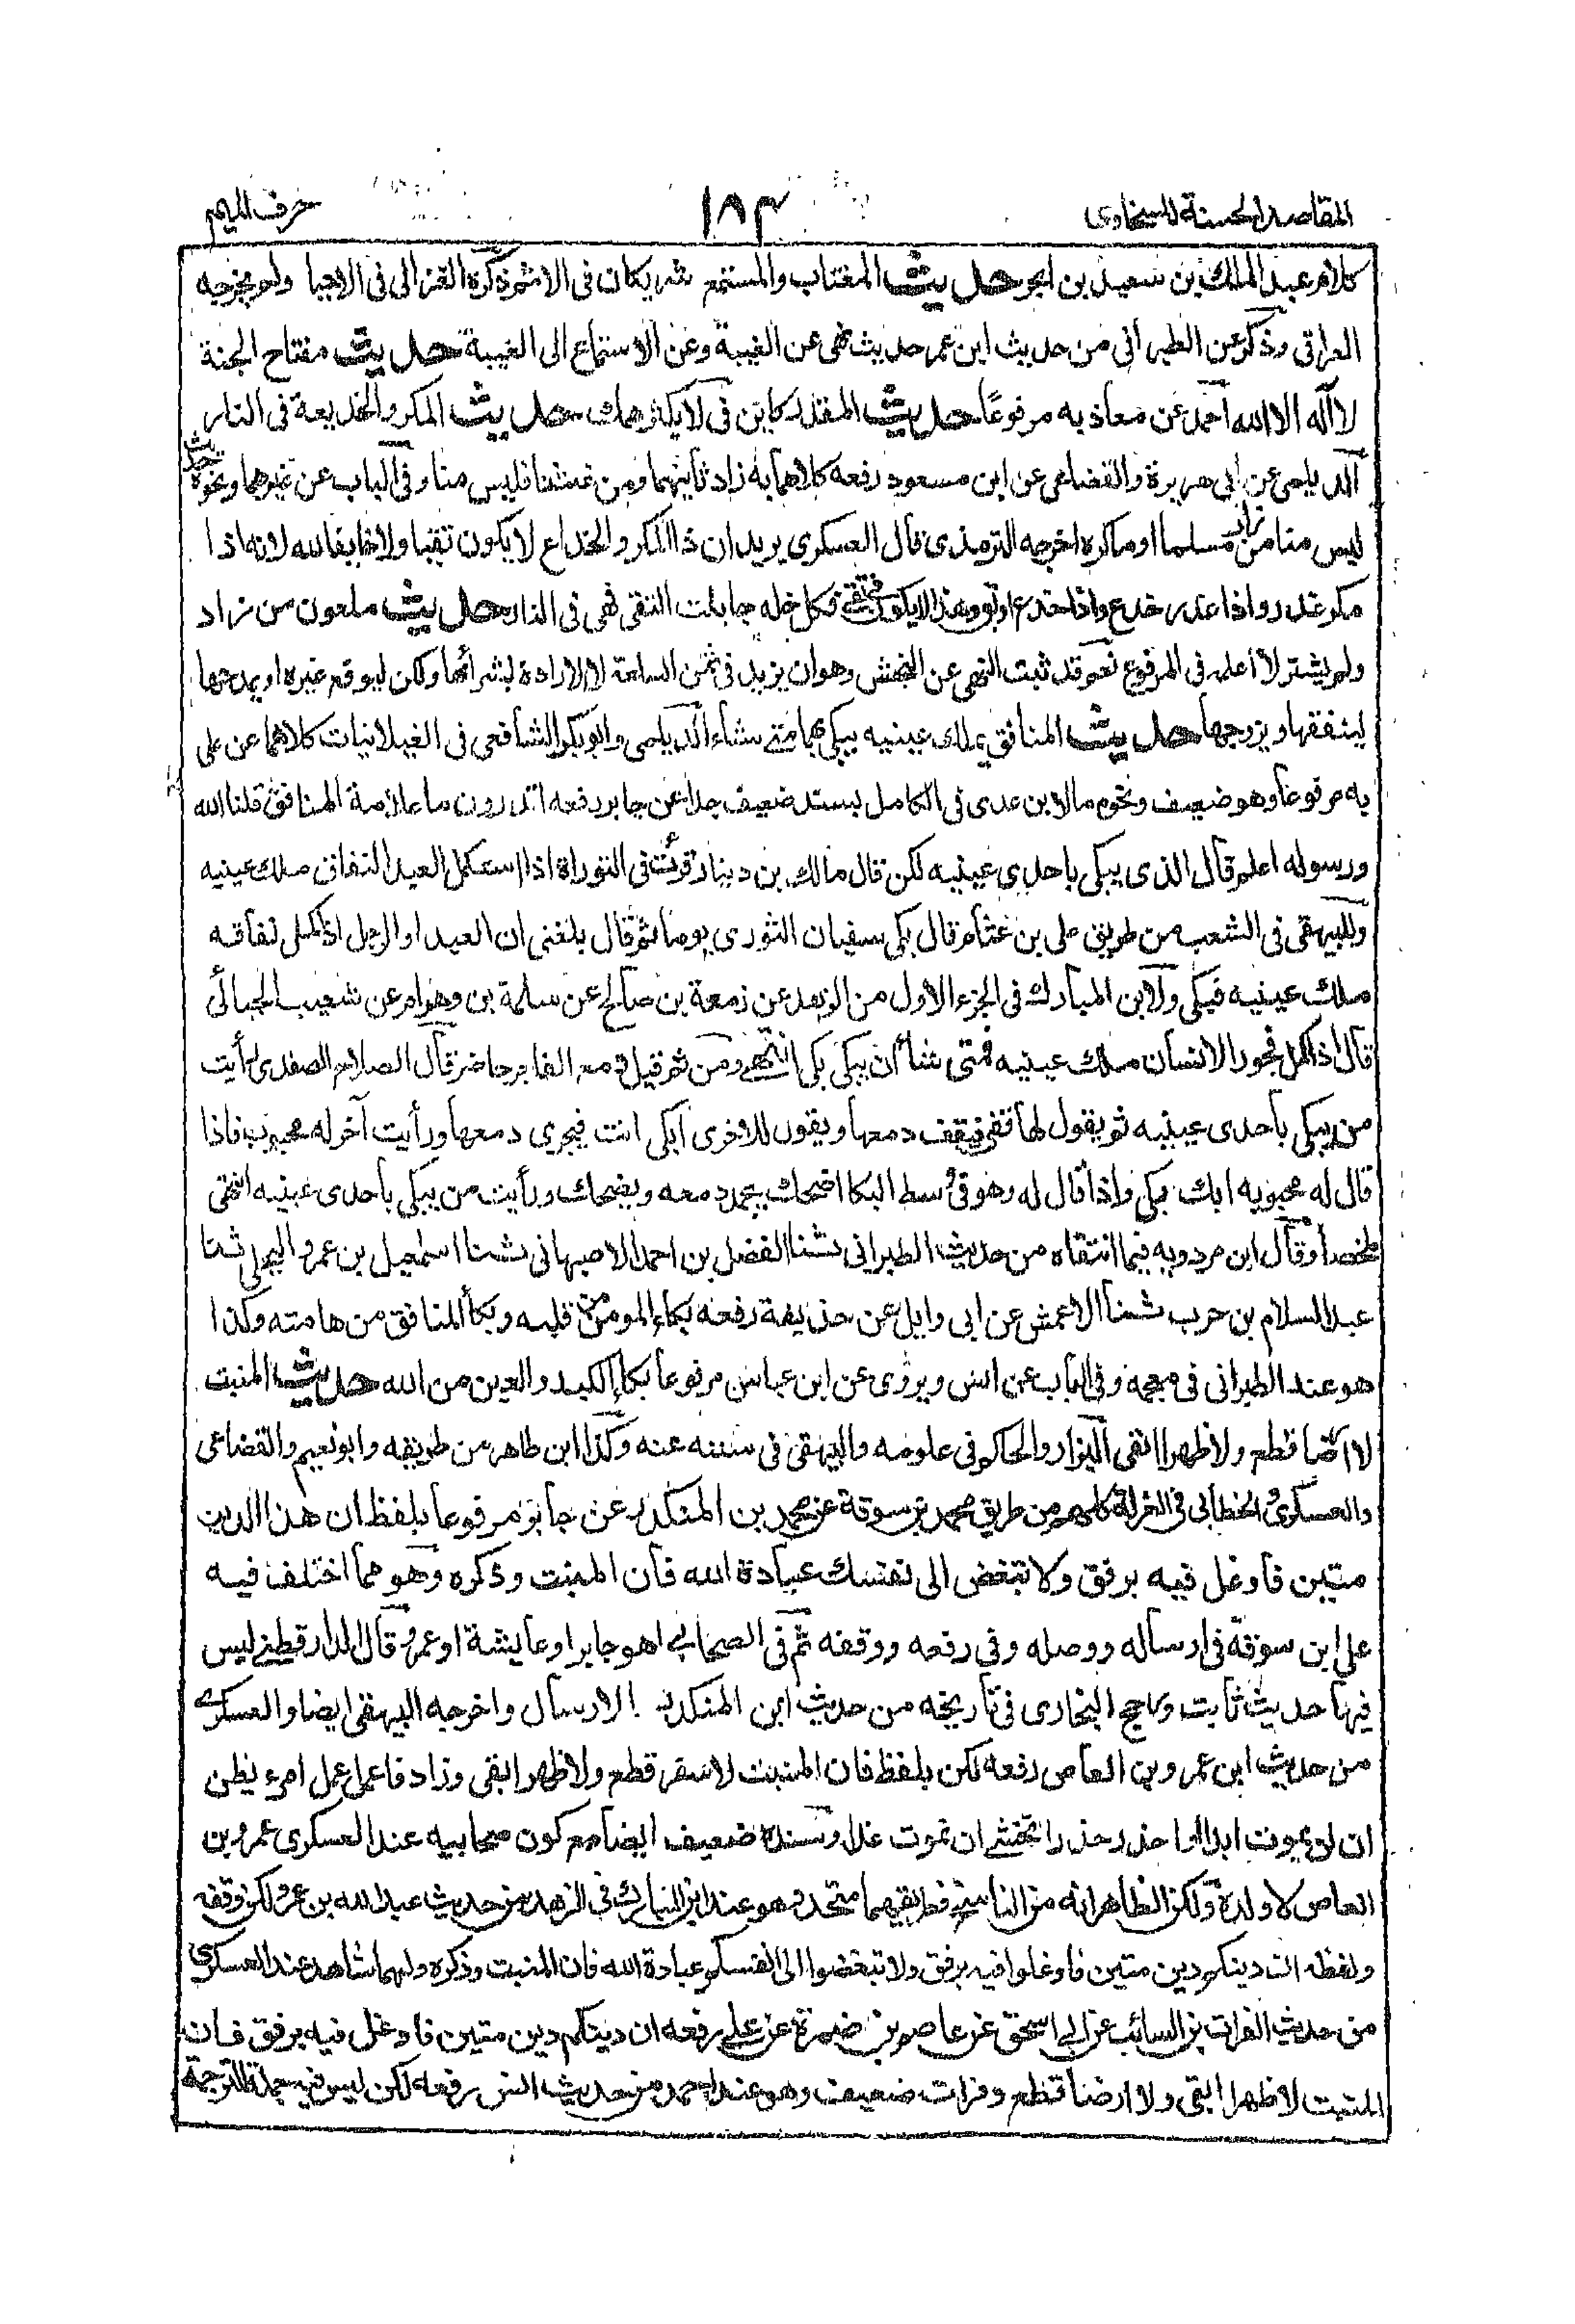 المقاصد الحسنة للسخاوى
١٨٣
حرف الميم
كلام عبد الملك بن سعيد بن ابجر حديث المغتاب والمستمع شريكان فى الاثم ذكره الغزالى فى الاحيا ولم يخرجه
العراقى وذكر عن الطبرانى من حديث ابن عمر حديث نهى عن الغيبة وعن الاستماع الى الغيبة حديث مفتاح الجنة
لا آله الا الله احمد عن معاذ به مرفوعًا حديث المقدر كاين فى لا يكثر همك حديث المكر والخديعة فى النار
الديلمى عن ابى هريرة والقضاعى عن ابن مسعود رفعه كلاهما به زاد ثانيهما ومن غشنا فليس منا وفى الباب عن غيرهما ونحوه حديث
ليس منا من ضار مسلما او ماكره اخرجه الترمذى قال العسكرى يريد ان ذا المكر والخداع لا يكون تقيا ولا خايفا لله لانه اذا
مكر غدر واذا غدر خدع واذا خدع اوبق وهذا لا يكون فى تقى فكل خلة جانبت التقى فهى فى النار حديث ملعون من زاد
ولم يشتر لا اعلمه فى المرفوع نعم قد ثبت النهى عن النجش وهو ان يزيد فى ثمن السلعة لا لارادة لشرائها ولكن ليوقع غيره او يمدحها
لينفقها ويروجها حديث المنافق يملك عينيه يبكى بهما متى شاء الديلمى وابو بكر الشافعى فى الغيلانيات كلاهما عن على
به مرفوعا وهو ضعيف ونحوه ما لابن عدى فى الكامل بسند ضعيف جدا عن جابر رفعه اتدرون ما علامة المنافق قلنا الله
ورسوله اعلم قال الذى يبكى باحدى عينيه لكن قال مالك بن دينار قرئت فى التوراة اذا استكمل العبد النفاق ملك عينيه
وللبيهقى فى الشعب من طريق على بن عثام قال بكى سفيان الثورى يوما ثم قال بلغنى ان العبد او الرجل اذا كمل نفاقه
ملك عينيه فيبكى ولابن المبارك فى الجزء الاول من الزهد عن زمعة بن صالح عن سلمة بن وهرام عن شعيب الجبائى
قال اذا كمل فجور الانسان ملك عينيه فمتى شا ان يبكى بكى انتهى ومن ثم قيل دمع الفاجر حاضر قال الصلاح الصفدى رأيت
من يبكى باحدى عينيه ثم يقول لها قفى فيقف دمعها ويقول للاخرى ابكى انت فيجرى دمعها ورأيت آخر له محبوب فاذا
قال له محبوبه ابك بكى واذا قال له وهو فى وسط البكا اضحك يجمد دمعه ويضحك ورأيت من يبكى باحدى عينيه انتهى
ملخصا وقال ابن مردويه فيما انتقاه من حديث الطبرانى ثنا الفضل بن احمد الاصبهانى ثنا اسمعيل بن عمرو البجلى ثنا
عبد السلام بن حرب ثنا الاعمش عن ابى وايل عن حذيفة رفعه بكاء المومن من قلبه وبكا المنافق من هامته وكذا
هو عند الطبرانى فى معجمه وفى الباب عن انس ويروى عن ابن عباس مرفوعا بكاء الكبد والعين من الله حديث المنبت
لا ارضا قطع ولا ظهرا ابقى البزار والحاكم فى علومه والبيهقى فى سننه عنه وكذا ابن طاهر من طريقه وابو نعيم والقضاعى
والعسكرى والخطابى فى العزلة كلهم من طريق محمد بن سوقة عن محمد بن المنكدر عن جابر مرفوعا بلفظ ان هذا الدين
متين فاوغل فيه برفق ولا تبغض الى نفسك عبادة الله فان المنبت وذكره وهو مما اختلف فيه
على ابن سوقة فى ارساله ووصله وفى رفعه ووقفه ثم فى الصحابى اهو جابر او عايشة او عمر وقال الدارقطنى ليس
فيها حديث ثابت ورجح البخارى فى تاريخه من حديث ابن المنكدر الارسال واخرجه البيهقى ايضا والعسكرى
من حديث ابن عمرو بن العاص رفعه لكن بلفظ فان المنبت لا سفر قطع ولا ظهرا ابقى وزاد فاعمل عمل امرء يظن
ان لن يموت ابدا واحذر حذرا تخشى ان تموت غدا وسنده ضعيف ايضا مع كون صحابيه عند العسكرى عمرو بن
العاص لا ولده ولكن الظاهر انه من الناسخ فطريقهما متحد وهو عند ابن المبارك فى الزهد من حديث عبد الله بن عمرو لكن وقفه
ولفظه ان دينكم دين متين فاوغلوا فيه برفق ولا تبغضوا الى انفسكم عبادة الله فان المنبت وذكره ولهما شاهد عند العسكرى
من حديث الفرات بن السائب عن ابى اسحق عن عاصم بن ضمرة عن على رفعه ان دينكم دين متين فاوغل فيه برفق فان
المنبت لا ظهرا ابقى ولا ارضا قطع وفرات ضعيف وهو عند احمد من حديث انس رفعه لكن ليس فيه جملة الترجمة